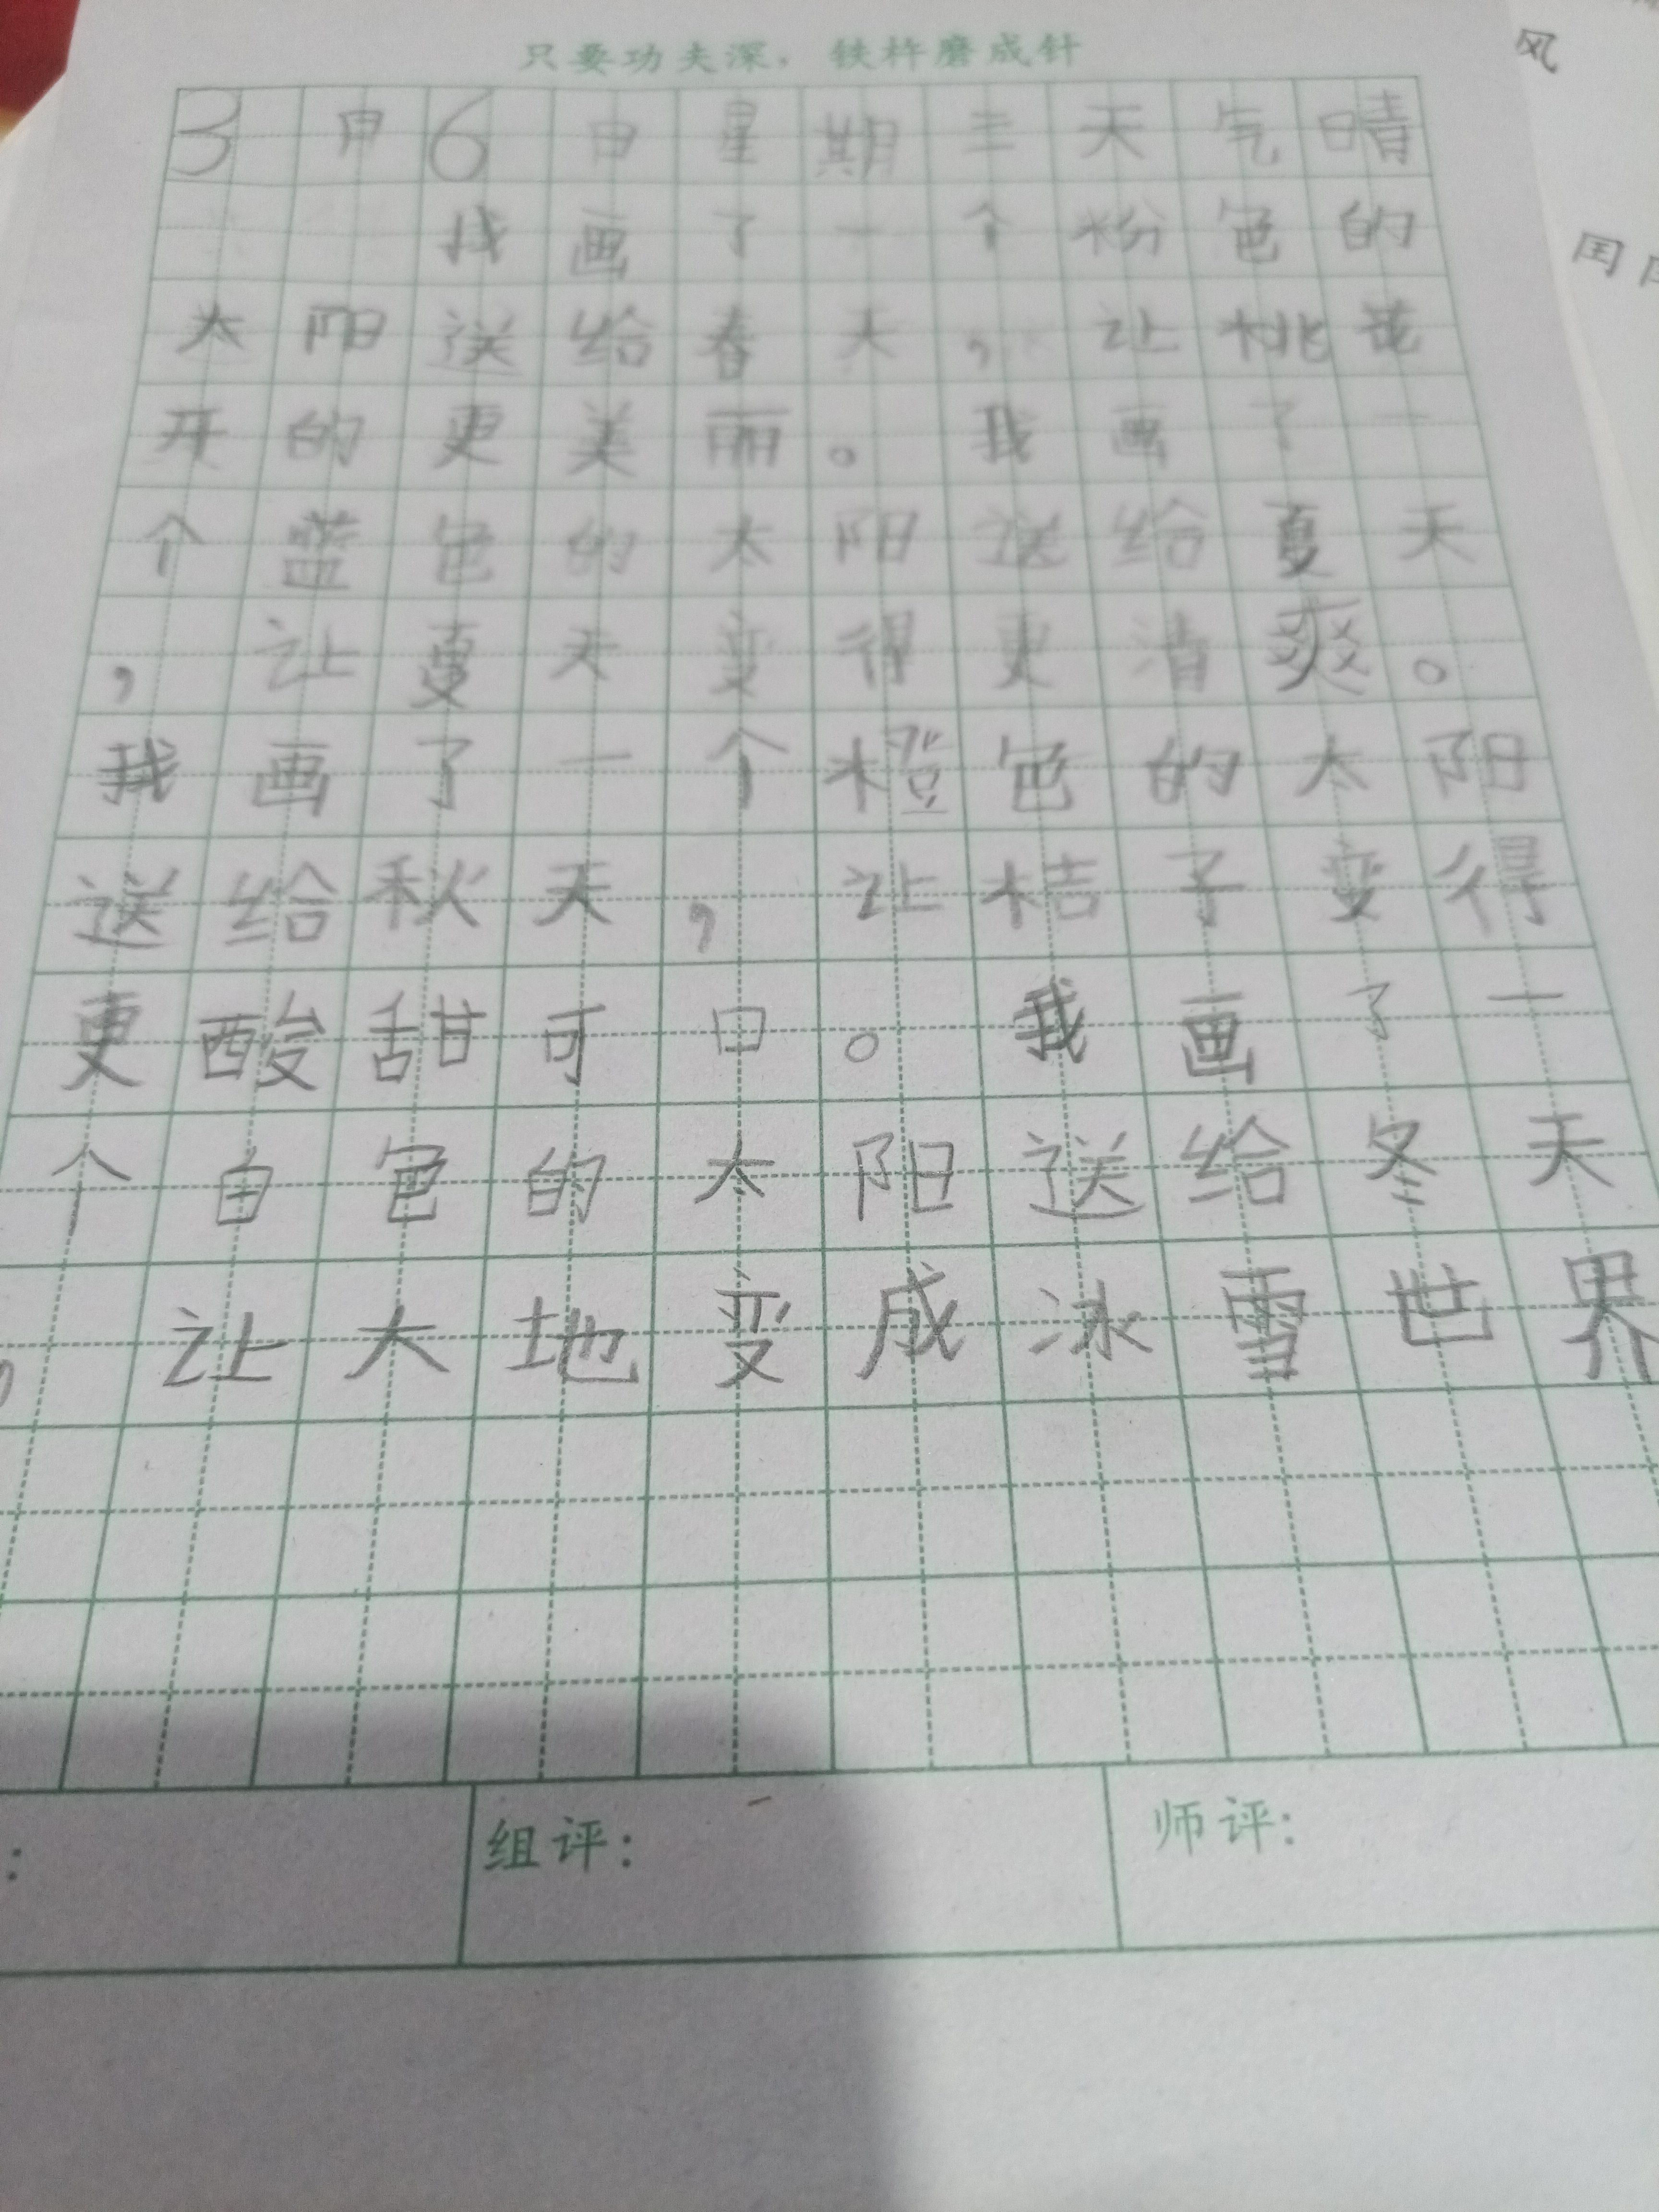 只要功夫深，铁杵磨成针
3月6日星期三天气晴
我画了一个粉色的
太阳送给春天，让桃花
开的更美丽。我画了一
个蓝色的太阳送给夏天
，让夏天变得更清爽。
我画了一个橙色的太阳
送给秋天，让桔子变得
更酸甜可口。我画了一
个白色的太阳送给冬天
，让大地变成冰雪世界
：
组评：
师评：
风